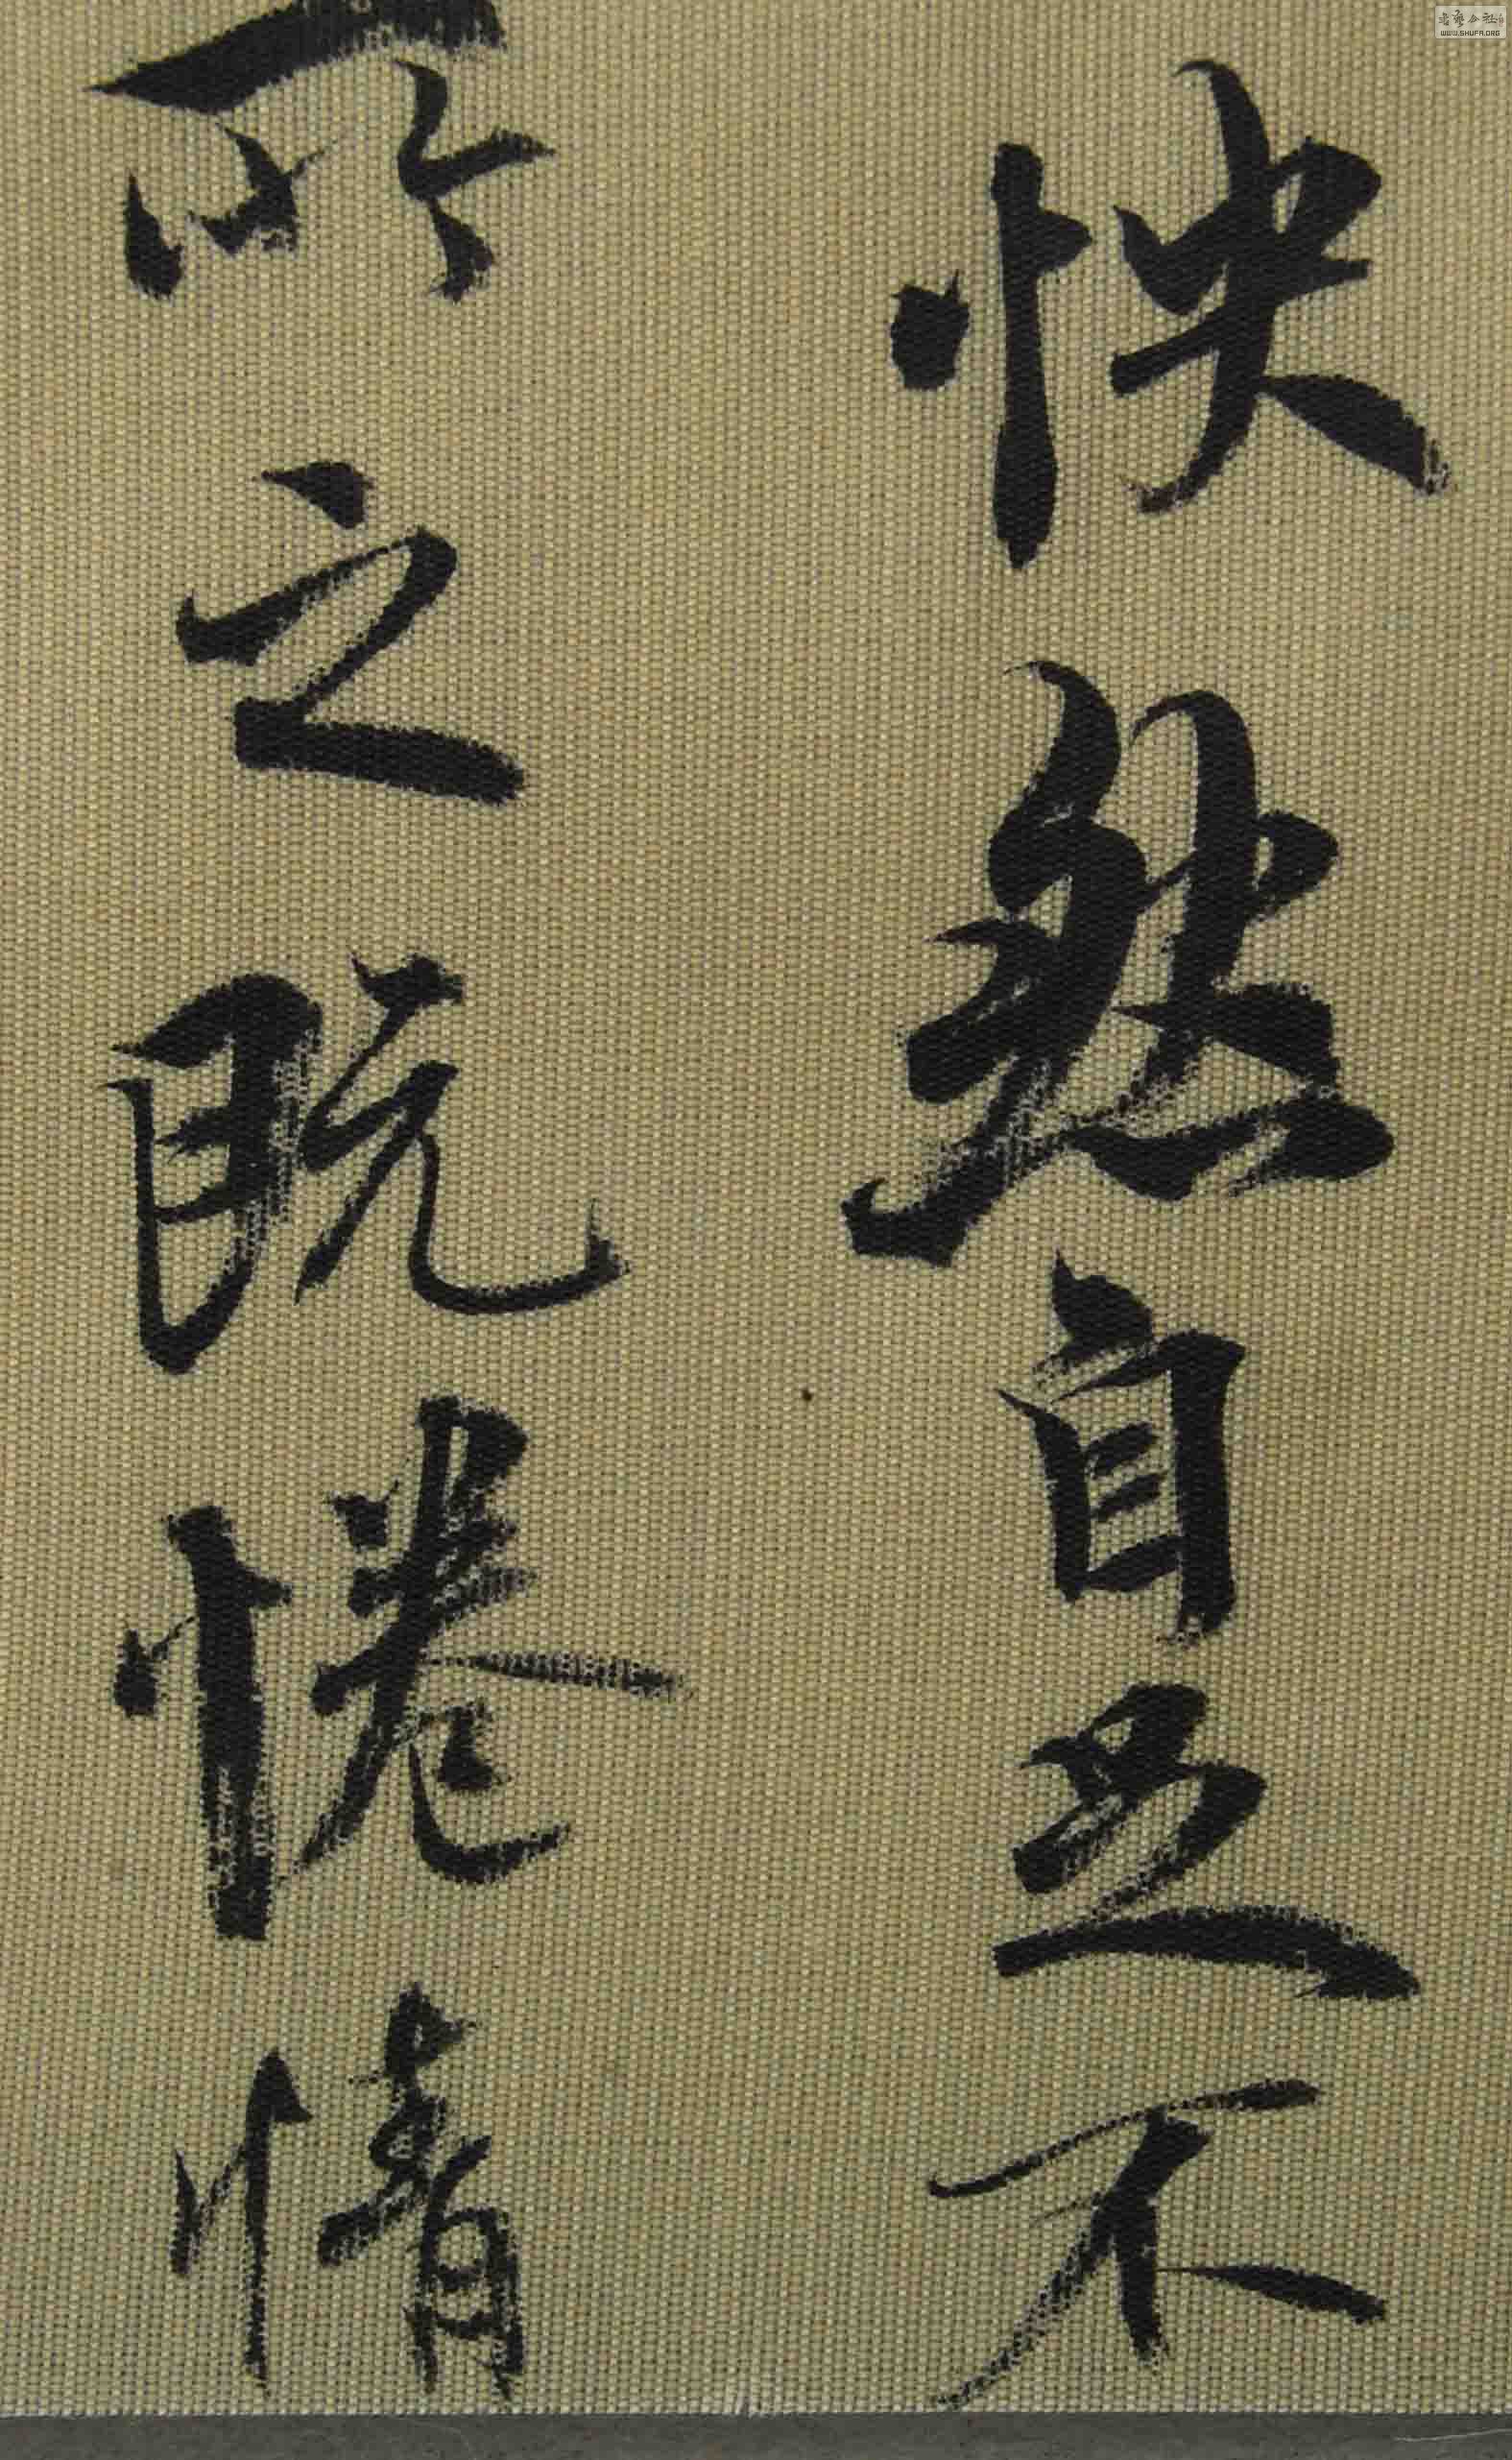 怏然自足不
所之既惓情
书艺公社
WWW.SHUFA.ORG